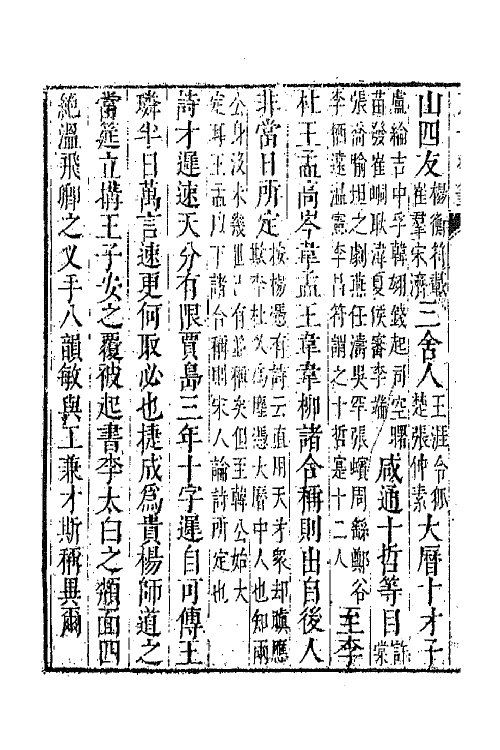 山四友楊衡符載崔羣宋濟三舍人王涯令狐楚張仲素大曆十才子
盧綸吉中孚韓翃錢起司空曙苗發崔峒耿湋夏侯審李端咸通十哲等目許棠
張喬喻坦之劇燕任濤吳罕張蠙周繇鄭谷李栖遠溫憲李昌符謂之十哲寔十二人至李
杜王孟高岑韋孟王韋韋柳諸合稱則出自後人
非當日所定按楊憑有詩云直用天才衆却瞋應欺李杜久爲靡憑大曆中人也知兩
公身沒未幾世已有並稱矣但至韓公始大定耳王孟以下諸合稱則宋人論詩所定也
詩才遲速天分有限賈島三年十字遲自可傳王
璘半日萬言速更何取必也捷成爲貴楊師道之
當筵立搆王子安之覆被起書李太白之頮面四
絶溫飛卿之叉手八韻敏與工兼才斯稱異爾